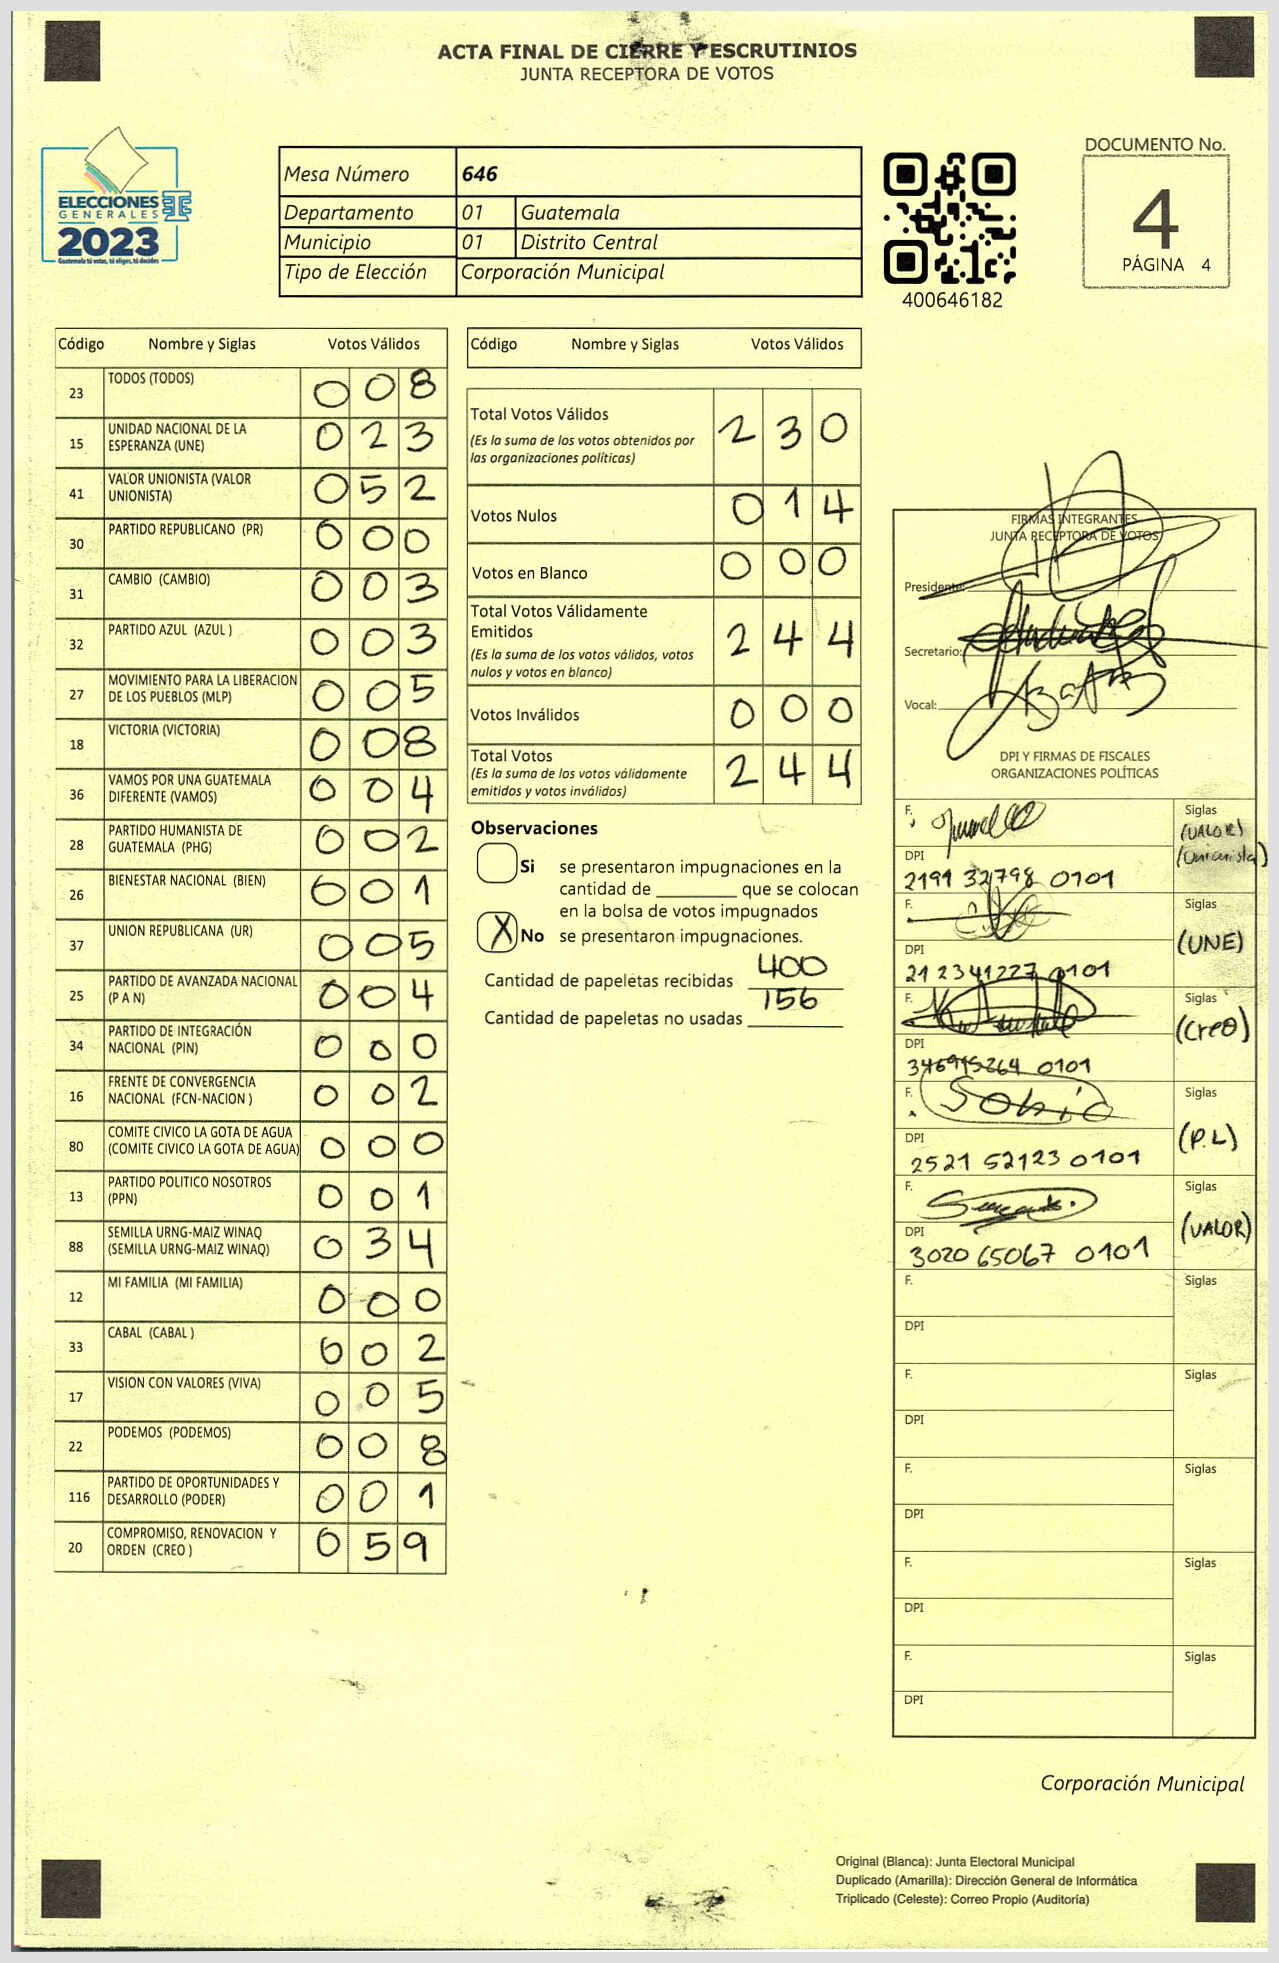 ACTA FINAL DE CIERRE Y ESCRUTINIOS
JUNTA RECEPTORA DE VOTOS
ELECCIONES
GENERALES
2023
Guatemala tú votas, tú eliges, tú decides
Mesa Número 646
Departamento 01 Guatemala
Municipio 01 Distrito Central
Tipo de Elección Corporación Municipal
400646182
DOCUMENTO No.
4
PÁGINA 4
Código Nombre y Siglas Votos Válidos
23 TODOS (TODOS) 008
15 UNIDAD NACIONAL DE LA
ESPERANZA (UNE) 023
41 VALOR UNIONISTA (VALOR
UNIONISTA) 052
30 PARTIDO REPUBLICANO (PR) 000
31 CAMBIO (CAMBIO) 003
32 PARTIDO AZUL (AZUL ) 003
27 MOVIMIENTO PARA LA LIBERACION
DE LOS PUEBLOS (MLP) 005
18 VICTORIA (VICTORIA) 008
36 VAMOS POR UNA GUATEMALA
DIFERENTE (VAMOS) 004
28 PARTIDO HUMANISTA DE
GUATEMALA (PHG) 002
26 BIENESTAR NACIONAL (BIEN) 001
37 UNION REPUBLICANA (UR) 005
25 PARTIDO DE AVANZADA NACIONAL
(P A N) 004
34 PARTIDO DE INTEGRACIÓN
NACIONAL (PIN) 000
16 FRENTE DE CONVERGENCIA
NACIONAL (FCN-NACION ) 002
80 COMITE CIVICO LA GOTA DE AGUA
(COMITE CIVICO LA GOTA DE AGUA) 000
13 PARTIDO POLITICO NOSOTROS
(PPN) 001
88 SEMILLA URNG-MAIZ WINAQ
(SEMILLA URNG-MAIZ WINAQ) 034
12 MI FAMILIA (MI FAMILIA) 000
33 CABAL (CABAL ) 002
17 VISION CON VALORES (VIVA) 005
22 PODEMOS (PODEMOS) 008
116 PARTIDO DE OPORTUNIDADES Y
DESARROLLO (PODER) 001
20 COMPROMISO, RENOVACION Y
ORDEN (CREO ) 059
Código Nombre y Siglas Votos Válidos
Total Votos Válidos 230
(Es la suma de los votos obtenidos por
las organizaciones políticas)
Votos Nulos 014
Votos en Blanco 000
Total Votos Válidamente
Emitidos 244
(Es la suma de los votos válidos, votos
nulos y votos en blanco)
Votos Inválidos 000
Total Votos 244
(Es la suma de los votos válidamente
emitidos y votos inválidos)
Observaciones
Si se presentaron impugnaciones en la
cantidad de ________ que se colocan
en la bolsa de votos impugnados
X No se presentaron impugnaciones.
Cantidad de papeletas recibidas 400
Cantidad de papeletas no usadas 156
FIRMAS INTEGRANTES
JUNTA RECEPTORA DE VOTOS
Presidente:
Secretario:
Vocal:
DPI Y FIRMAS DE FISCALES
ORGANIZACIONES POLÍTICAS
F. Siglas
(VALOR)
(Unionista)
DPI
2191 32798 0101
F. Siglas
(UNE)
DPI
21 2341227 0101
F. Siglas
(Creo)
DPI
0101
F. Siglas
(P.L)
DPI
2521 52123 0101
F. Siglas
(VALOR)
DPI
3020 65067 0101
F. Siglas
DPI
F. Siglas
DPI
F. Siglas
DPI
F. Siglas
DPI
F. Siglas
DPI
Corporación Municipal
Original (Blanca): Junta Electoral Municipal
Duplicado (Amarilla): Dirección General de Informática
Triplicado (Celeste): Correo Propio (Auditoría)